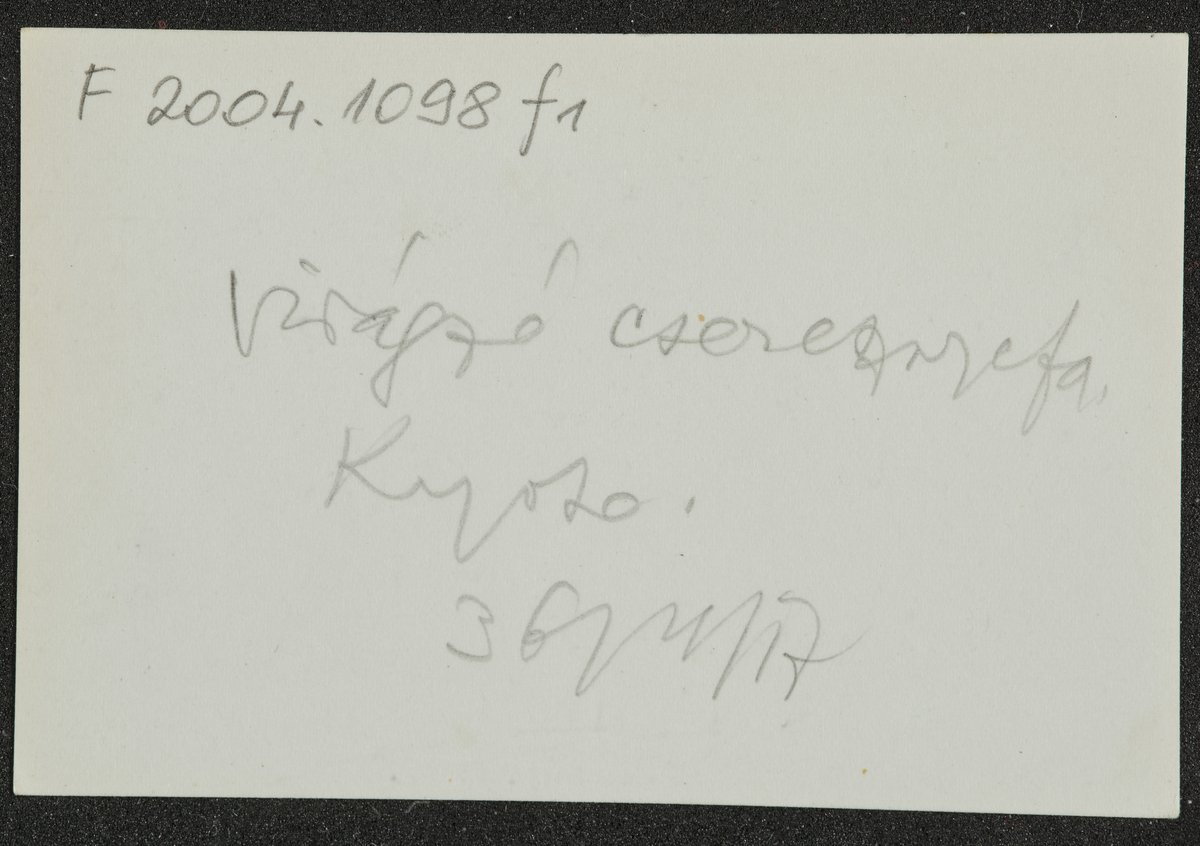 F 2004.1098 f1
Virágzó cseresznyefa.
Kyoto.
36/IV/17